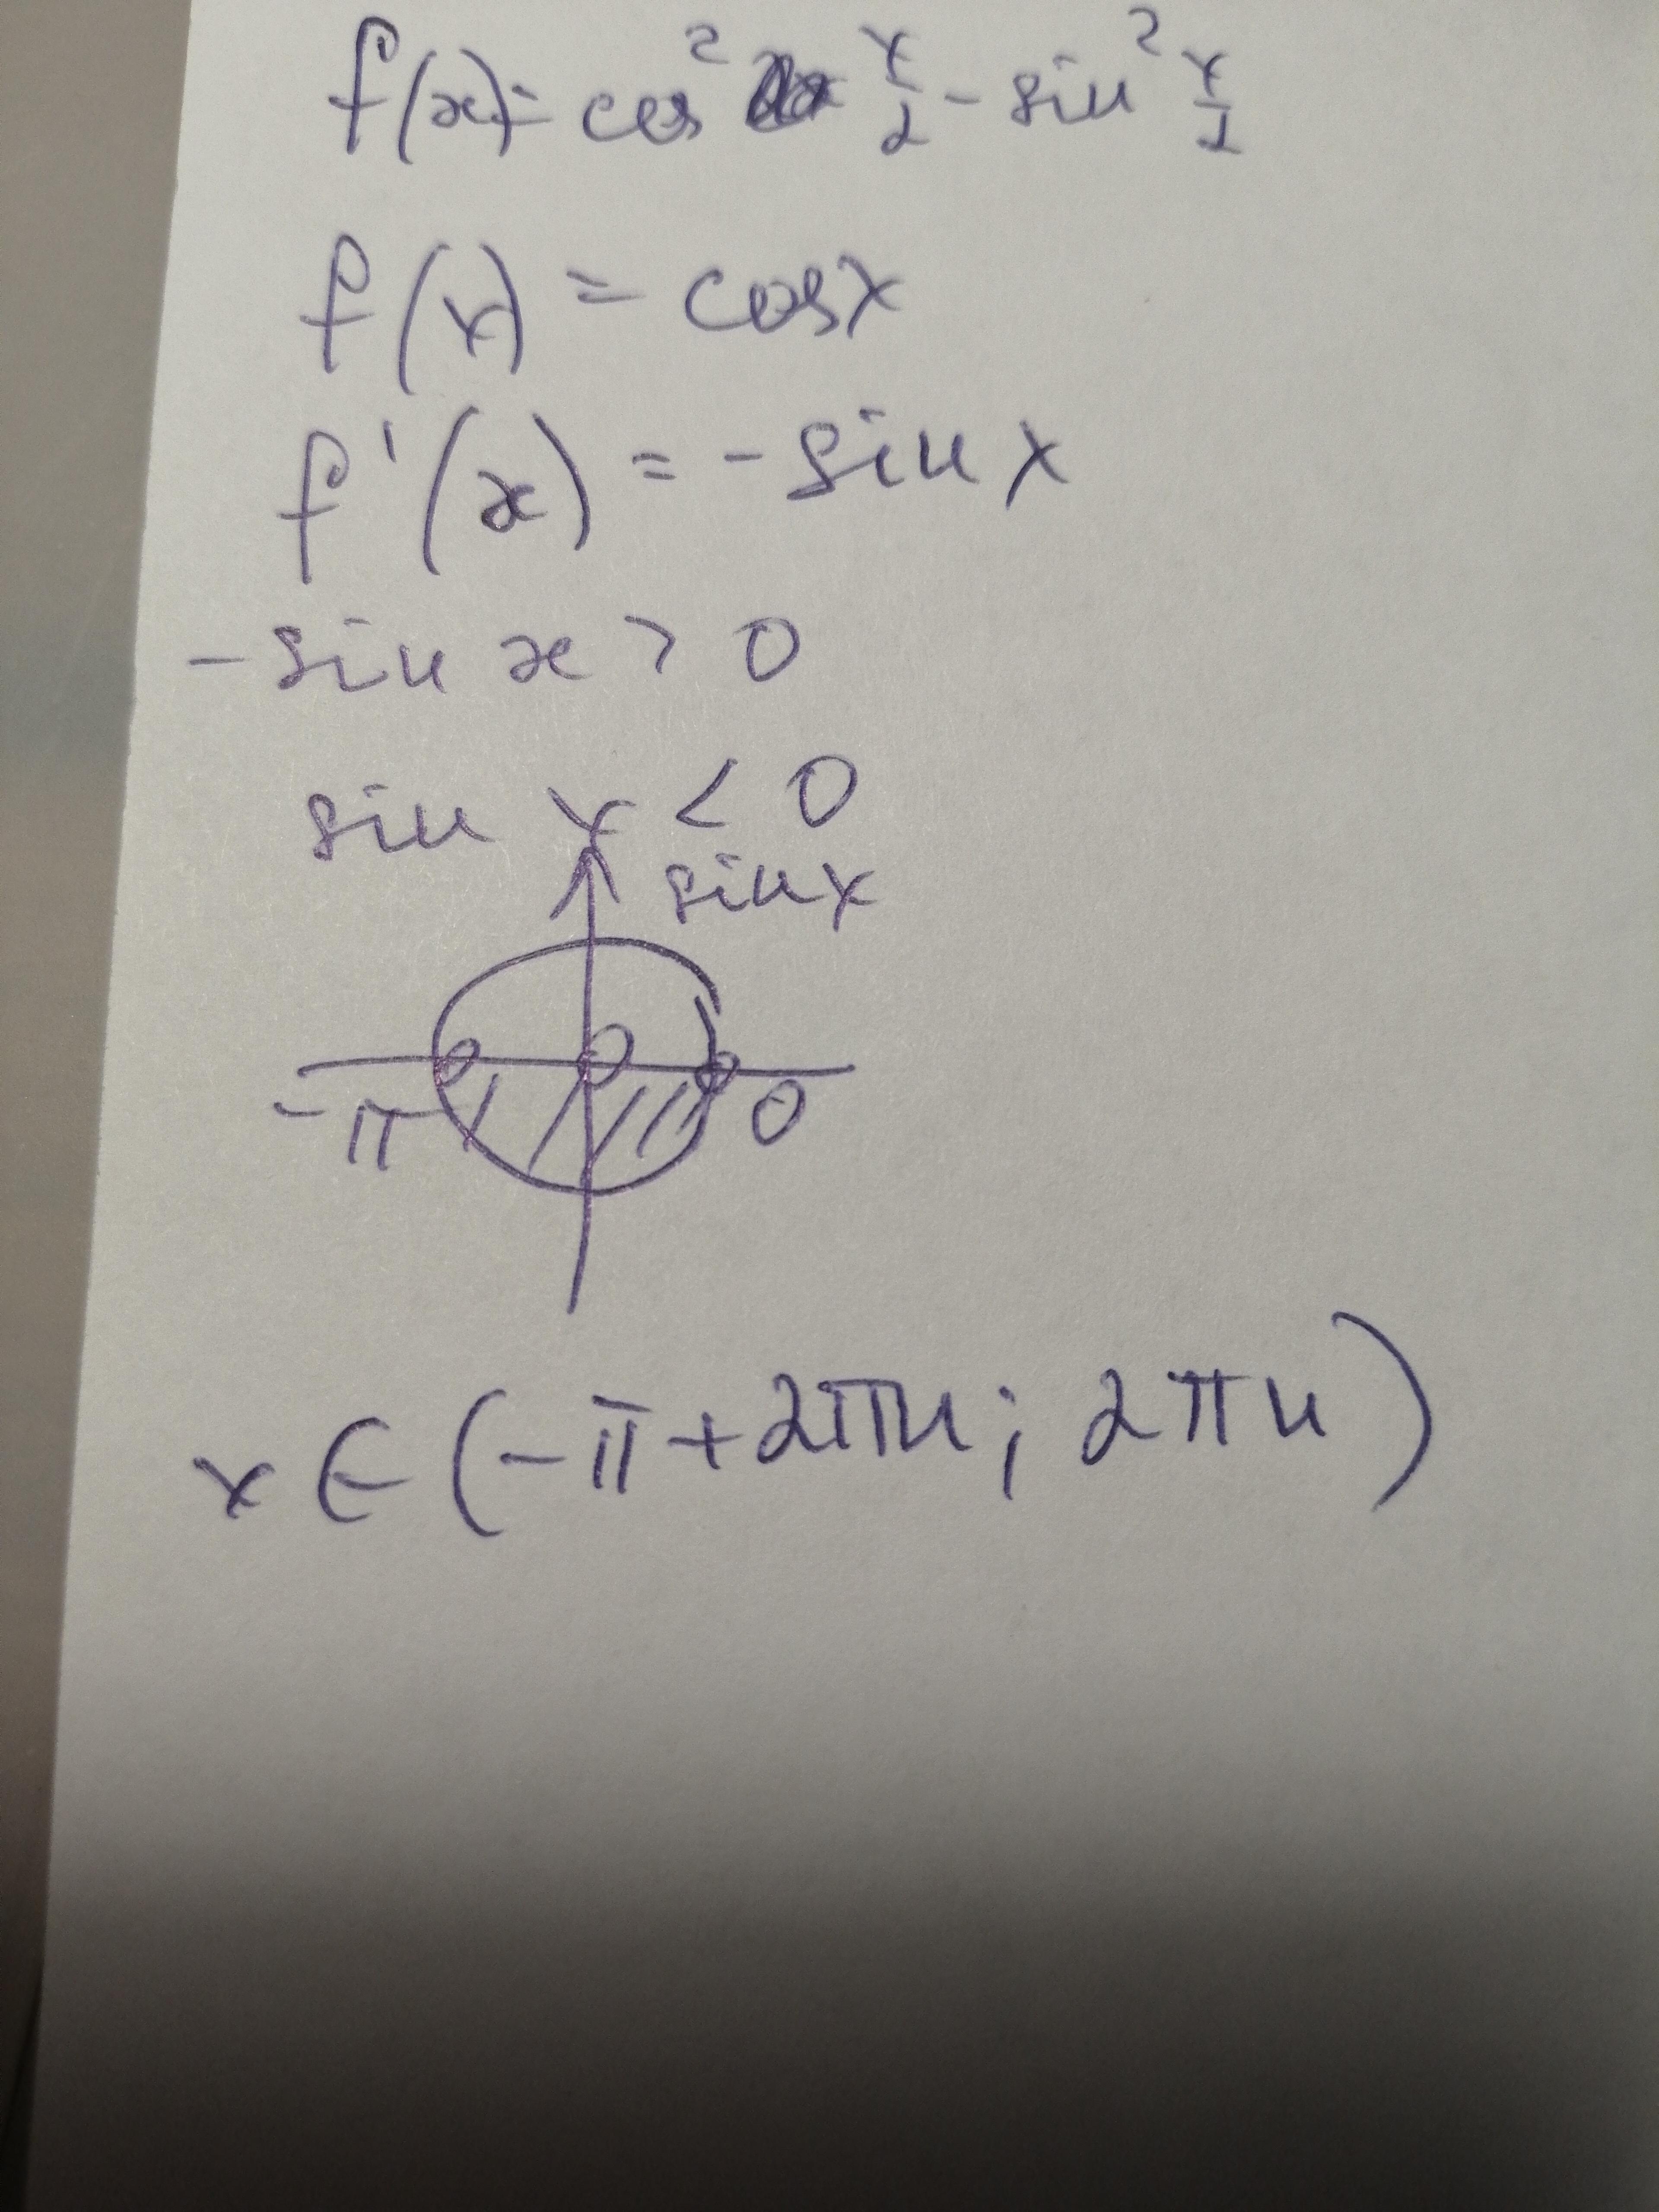 f(x) = cos² x/2 - sin² x/2
f(x) = cosx
f'(x) = -sin x
-sin x > 0
sin x < 0
sinx
-π 0
x ∈ (-π + 2πn; 2πn)